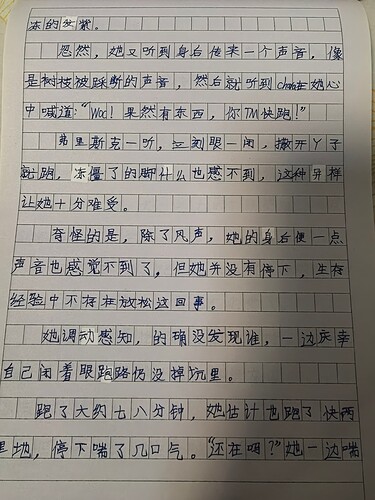 冻的发紫。
忽然，她又听到身后传来一个声音，像
是树枝被踩断的声音，然后就听到chak在她心
中喊道："Woc！果然有东西，你TM快跑！"
弗里斯克一听，立刻眼一闭，撒开丫子
就跑，冻僵了的脚什么也感不到，这种异样
让她十分难受。
奇怪的是，除了风声，她的身后便一点
声音也感觉不到了，但她并没有停下，生存
经验中不存在放松这回事。
她调动感知，的确没发现谁，一边庆幸
自己闭着眼跑路仍没掉坑里。
跑了大约七八分钟，她估计也跑了快两
里地，停下喘了几口气。"还在吗？"她一边喘